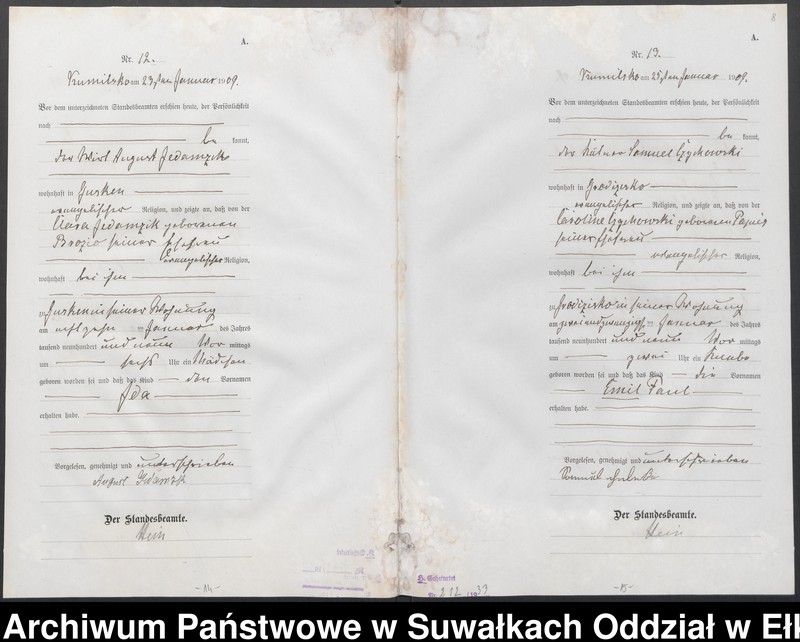 A.
Nr. 12.
am 23ten Januar 1909.
Vor dem unterzeichneten Standesbeamten erschien heute, der Persönlichkeit
nach
be kannt,
der Wirt August Jedamzik
wohnhaft in Gusken
evangelischer Religion, und zeigte an, daß von der
Clara Jedamzik geborenen
Brozio seiner Ehefrau
evangelischer Religion,
wohnhaft bei ihm
zu Gusken in seiner Wohnung
am achtzehn ten Januar des Jahres
tausend neunhundert und neun Vor mittags
um sechs Uhr ein Mädchen
geboren worden sei und daß das Kind den Vornamen
Ida
erhalten habe.
Vorgelesen, genehmigt und unterschrieben
August
Der Standesbeamte.
Hein
-14-
8
A.
Nr. 13.
am 25ten Januar 1909.
Vor dem unterzeichneten Standesbeamten erschien heute, der Persönlichkeit
nach
be kannt,
der Kätner Samuel
wohnhaft in
evangelischer Religion, und zeigte an, daß von der
Caroline geborenen
seiner Ehefrau
evangelischer Religion,
wohnhaft bei ihm
zu in seiner Wohnung
am zweiundzwanzigs ten Januar des Jahres
tausend neunhundert und neun Vor mittags
um zwei Uhr ein Knabe
geboren worden sei und daß das Kind die Vornamen
Emil Paul
erhalten habe.
Vorgelesen, genehmigt und unterschrieben
Samuel
Der Standesbeamte.
Hein
-15-
Archiwum Państwowe w Suwałkach Oddział w Eł